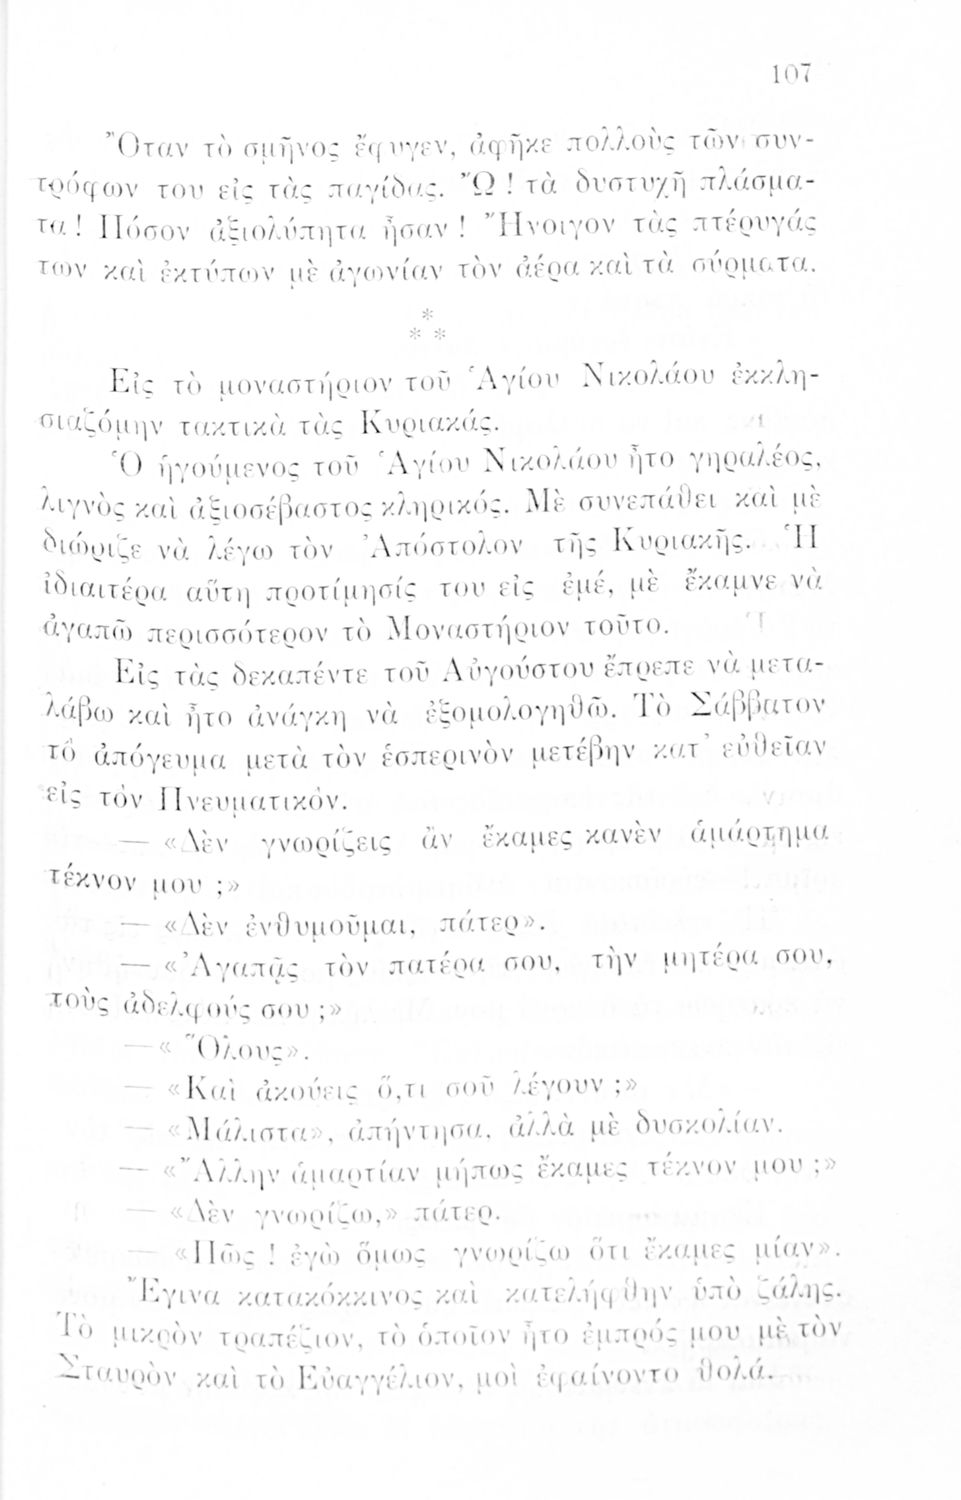 107
Ὅταν τὸ σμῆνος ἔφυγεν, ἀφῆκε πολλοὺς τῶν συν-
τρόφων του εἰς τὰς παγίδας. Ὤ ! τὰ δυστυχῆ πλάσμα-
τα ! Πόσον ἀξιολύπητα ἦσαν ! Ἤνοιγον τὰς πτέρυγάς
των καὶ ἐκτύπων μὲ ἀγωνίαν τὸν ἀέρα καὶ τὰ σύρματα.
*
* *
Εἰς τὸ μοναστήριον τοῦ Ἁγίου Νικολάου ἐκκλη-
σιαζόμην τακτικὰ τὰς Κυριακάς.
Ὁ ἡγούμενος τοῦ Ἁγίου Νικολάου ἦτο γηραλέος,
λιγνὸς καὶ ἀξιοσέβαστος κληρικός. Μὲ συνεπάθει καὶ μὲ
διώριζε νὰ λέγω τὸν Ἀπόστολον τῆς Κυριακῆς. Ἡ
ἰδιαιτέρα αὕτη προτίμησίς του εἰς ἐμέ, μὲ ἔκαμνε νὰ
ἀγαπῶ περισσότερον τὸ Μοναστήριον τοῦτο.
Εἰς τὰς δεκαπέντε τοῦ Αὐγούστου ἔπρεπε νὰ μετα-
λάβω καὶ ἦτο ἀνάγκη νὰ ἐξομολογηθῶ. Τὸ Σάββατον
τὸ ἀπόγευμα μετὰ τὸν ἑσπερινὸν μετέβην κατ᾽ εὐθεῖαν
εἰς τὸν Πνευματικόν.
— «Δὲν γνωρίζεις ἂν ἔκαμες κανὲν ἁμάρτημα
τέκνον μου ;»
— «Δὲν ἐνθυμοῦμαι, πάτερ».
— «Ἀγαπᾷς τὸν πατέρα σου, τὴν μητέρα σου,
τοὺς ἀδελφούς σου ;»
— « Ὅλους».
— «Καὶ ἀκούεις ὅ,τι σοῦ λέγουν ;»
— «Μάλιστα», ἀπήντησα, ἀλλὰ μὲ δυσκολίαν.
— «Ἄλλην ἁμαρτίαν μήπως ἔκαμες τέκνον μου ;»
— «Δὲν γνωρίζω,» πάτερ.
— «Πῶς ! ἐγὼ ὅμως γνωρίζω ὅτι ἔκαμες μίαν».
Ἔγινα κατακόκκινος καὶ κατελήφθην ὑπὸ ζάλης.
Τὸ μικρὸν τραπέζιον, τὸ ὁποῖον ἦτο ἐμπρός μου μὲ τὸν
Σταυρὸν καὶ τὸ Εὐαγγέλιον, μοὶ ἐφαίνοντο θολά.